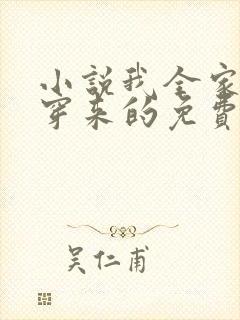 小說我全家
穿来的免費
吴仁甫